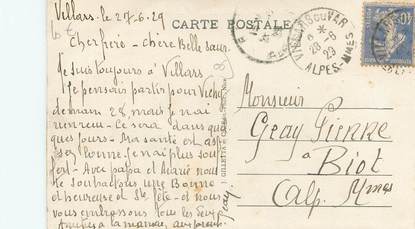 Villars. le 27-6-29
CARTE POSTALE
Cher frère - chère Belle sœur
Je suis toujours à Villars
Je pensais partir pour Vichy
demain 28, mais je n'ai
rien reçu - Ce sera dans quel
ques jours - Ma santé est as
sez bonne. Je n'ai plus souf
fert - Avec papa et Marie nous
te souhaitons une Bonne
et heureuse et Ste fête - et nous
vous embrassons tous les deux
VILLARS DU VAR
28 - 6
29
ALPES-MMES
Monsieur
Geay Pierre
à
Biot
(alp. Mmes